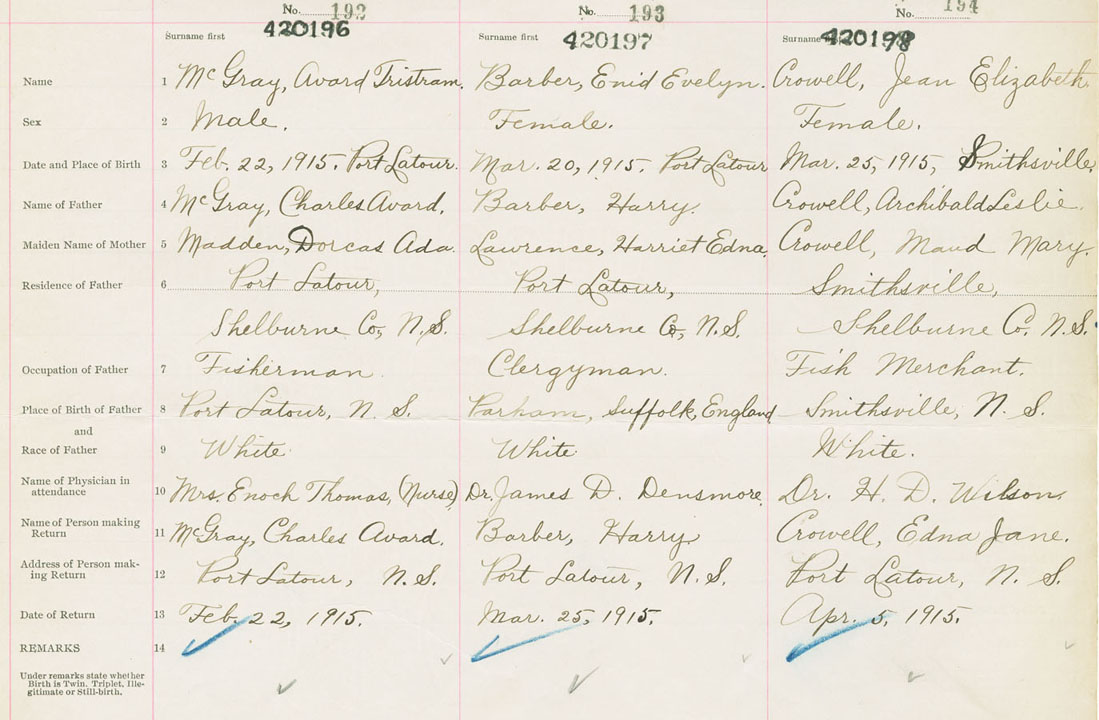 No. 192 No. 193 No. 194
Surname first 420196 Surname first 420197 Surname first 420198
Name 1 McGray, Avard Tristram. Barber, Enid Evelyn. Crowell, Jean Elizabeth.
Sex 2 Male. Female. Female.
Date and Place of Birth 3 Feb. 22, 1915. Port Latour. Mar. 20, 1915. Port Latour Mar. 25, 1915, Smithsville.
Name of Father 4 McGray, Charles Avard. Barber, Harry. Crowell, Archibald Leslie.
Maiden Name of Mother 5 Madden, Dorcas Ada. Lawrence, Harriet Edna. Crowell, Maud Mary.
Residence of Father 6 Port Latour, Port Latour, Smithsville,
Shelburne Co, N.S. Shelburne Co, N.S. Shelburne Co. N.S.
Occupation of Father 7 Fisherman. Clergyman. Fish Merchant.
Place of Birth of Father 8 Port Latour, N. S. Parham, Suffolk, England Smithsville, N. S.
and
Race of Father 9 White. White White.
Name of Physician in
attendance 10 Mrs. Enoch Thomas, (Nurse) Dr. James D. Densmore. Dr. H. D. Wilson.
Name of Person making
Return 11 McGray, Charles Avard. Barber, Harry. Crowell, Edna Jane.
Address of Person mak-
ing Return 12 Port Latour, N.S. Port Latour, N.S. Port Latour, N. S.
Date of Return 13 Feb. 22, 1915. Mar. 25, 1915. Apr. 5, 1915.
REMARKS 14
Under remarks state whether
Birth is Twin, Triplet, Ille-
gitimate or Still-birth.